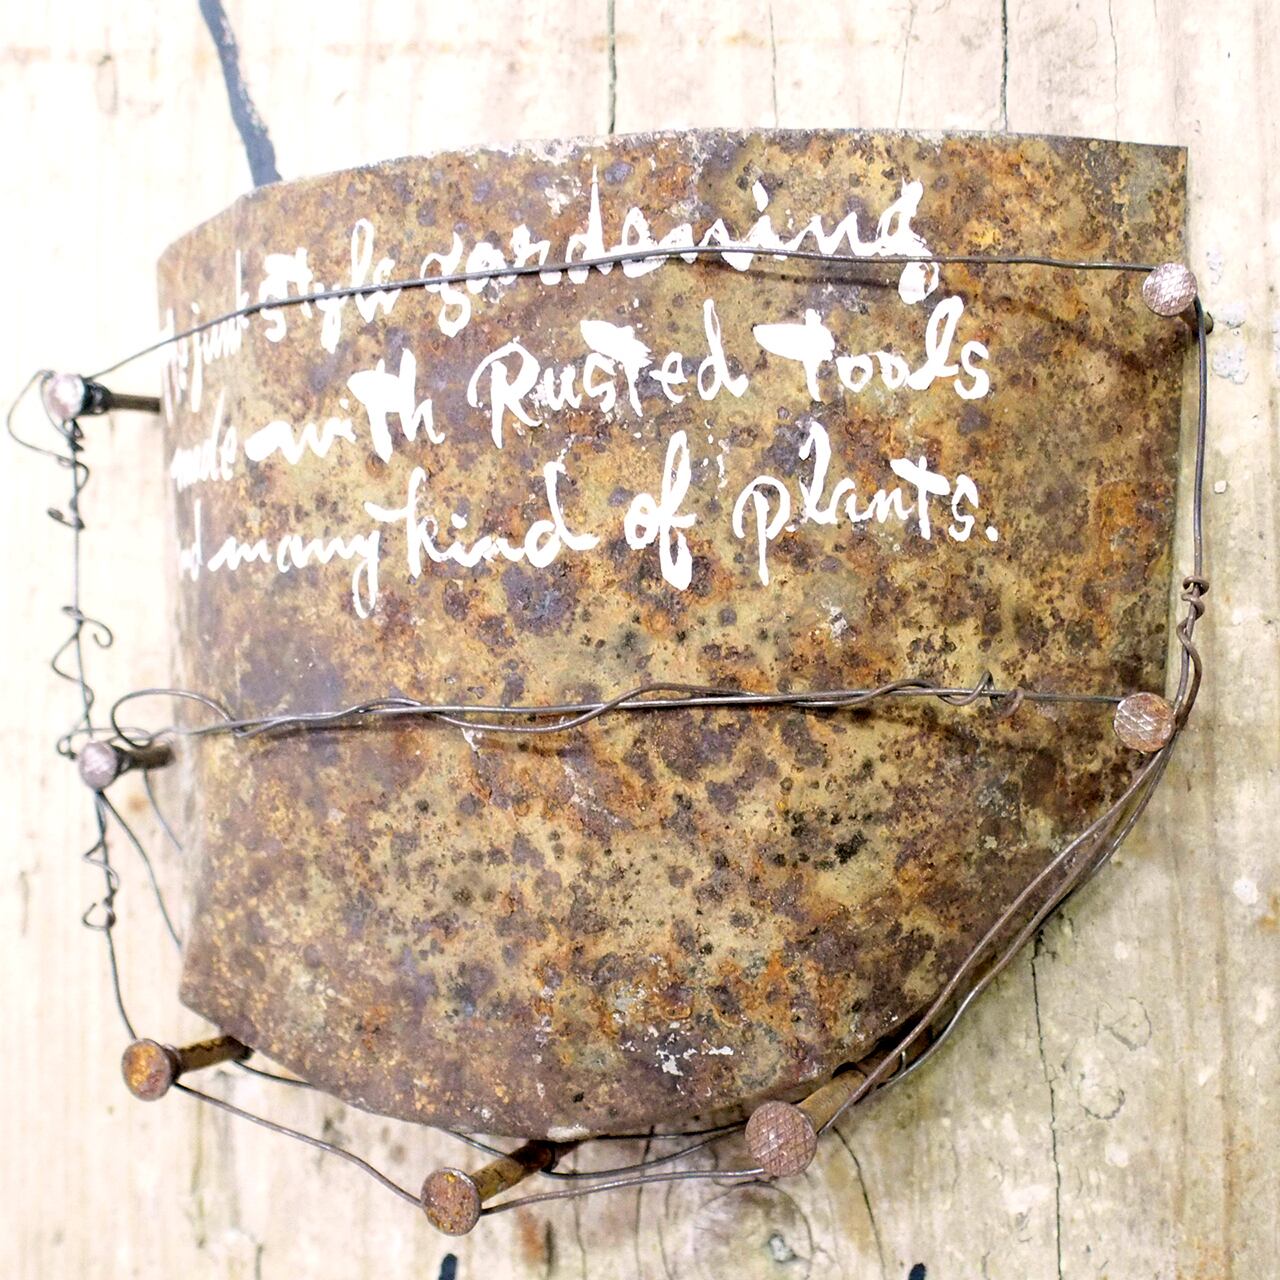 junk style gardening
made with Rusted Tools
and many kind of plants.